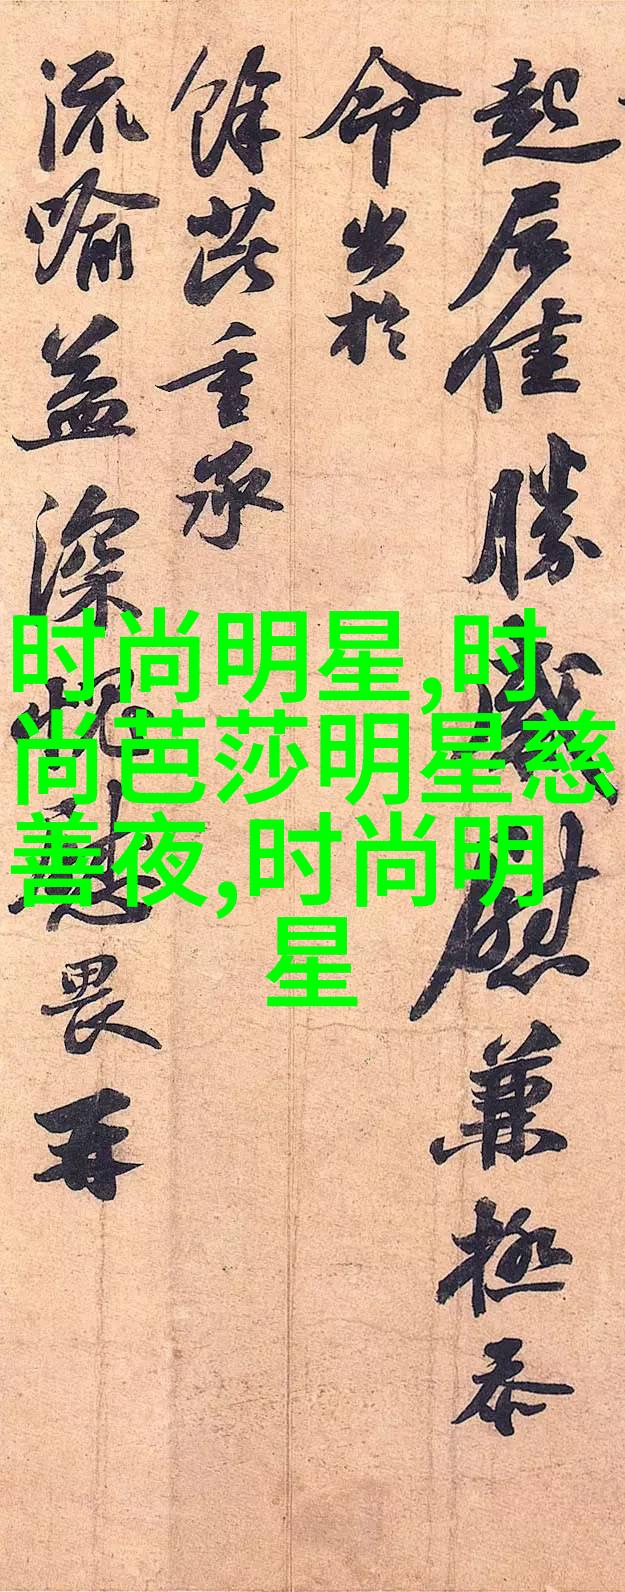 起居佳勝感慰兼極忝
命出於
餘芘重承
流喻益深愧慰畏再
时尚明星,时
尚芭莎明星慈
善夜,时尚明
星